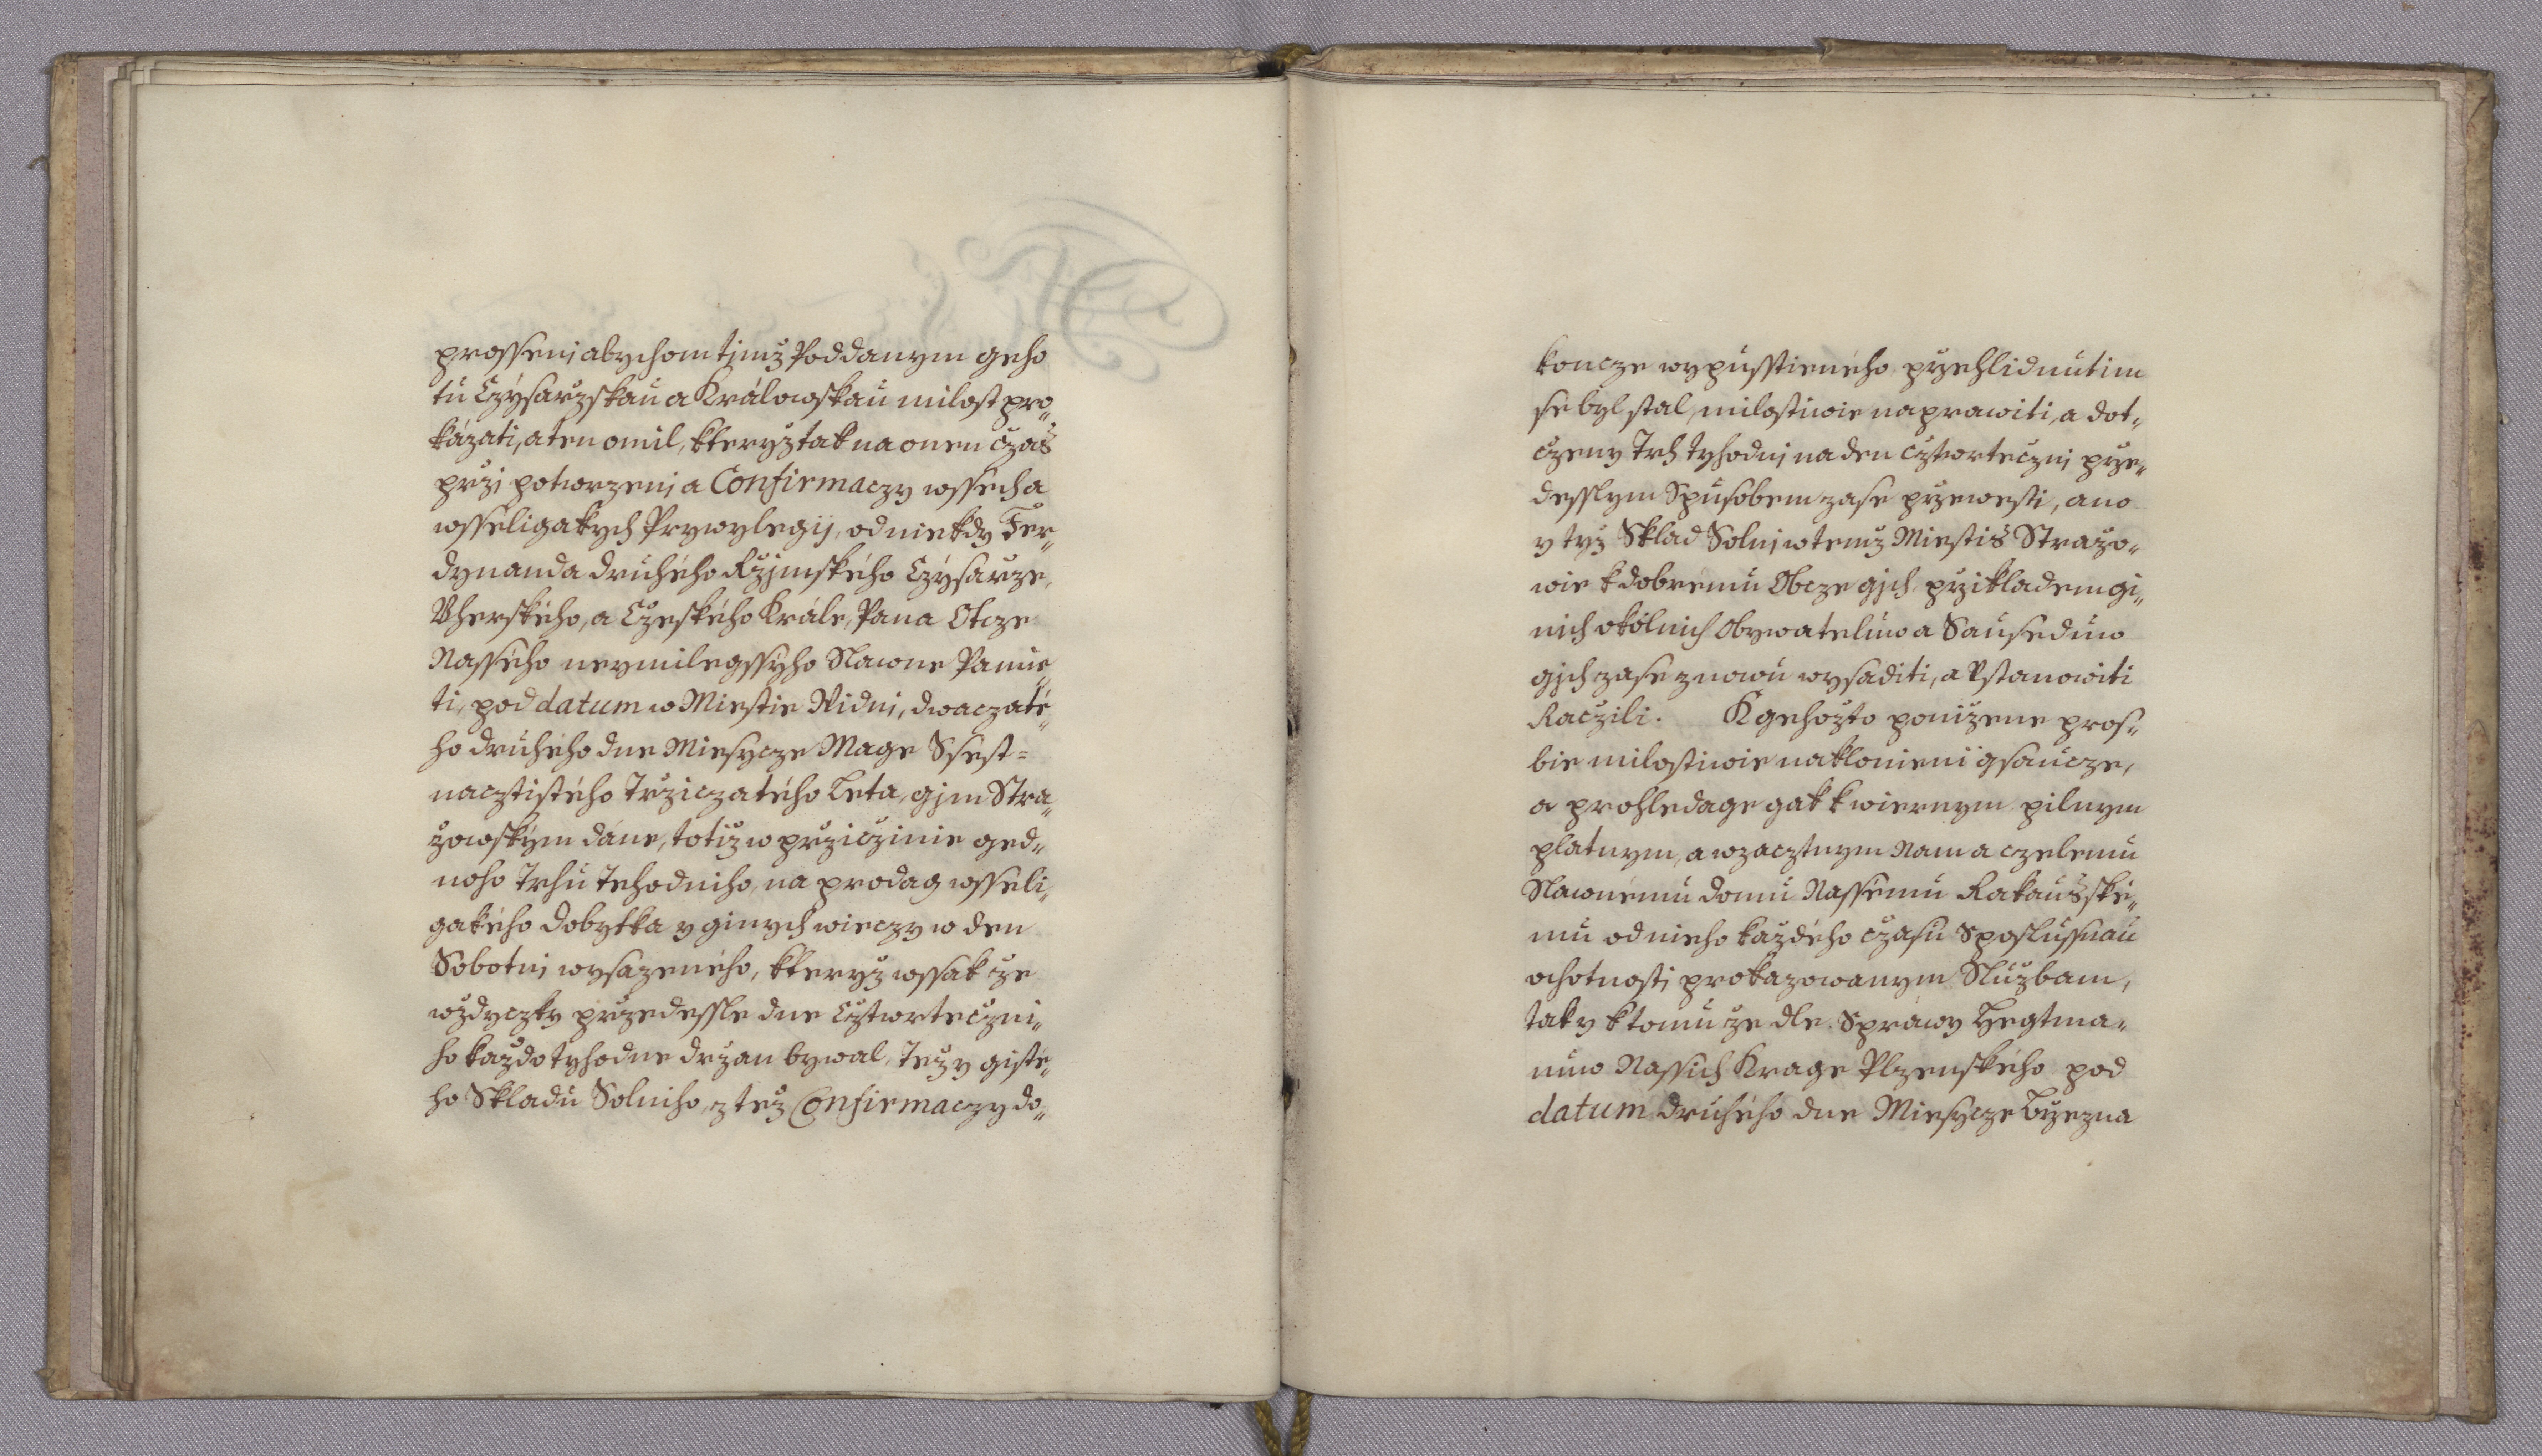 prosseni abychom timž Poddanym geho
tu Czysarzskau a Králowskau milost pro„
kázati, a ten omil, kteryž tak na onen cžas
przi potwrzeni a Confirmaczy wssech a
wsseligakych Prywylegij, od niekdy Fer„
dynanda druhého Ržjmského Czysarze,
Vherského, a Czeského Krále, Pana Otcze
Nasseho neymilegssyho Slawne Pamie„
ti, pod datum w Miestie Widni, dwaczaté„
ho druhého dne Miesycze Mage Ssest=
nacztistého Trziczatého Leta, gjm Stra„
žowským dáne, totiž w prziczinie ged„
noho Trhu Tehodniho, na prodag wsseli„
gakého dobytka y ginych wieczy w den
Sobotni wysazeného, kteryž wssak cze
wždyczky przedessle dne Cztwrteczni„
ho každotyhodne držan bywal, Tež y gisté„
ho Skladu Solniho, z též Confirmaczy do„
koncze wypusstieného przehlidnutim
se byl stal, milostiwie naprawiti, a dot„
czeny Trh tyhodni na den cztwrteczni prze„
desslym Spusobem zase przewesti, ano
y tyž Sklad Solni w temž Miestis Stražo„
wie k dobrému Obcze gjch, przikladem gi„
nich okolnich Obywateluw a Sauseduw
gjch zase znowu wysaditi, a Vstanowiti
Raczili. K gehožto ponižene pros„
bie milostiwie naklonieni gsaucze,
a prohledage gak k wiernym pilnym
platnym, a wzacztnym Nam a czelemu
Slawnému domu Nassému Rakausské„
mu od nieho každého cžasu S poslussnau
ochotnosti prokazowanym Službam,
tak y k tomu že dle Spráwy Hegtma„
nuw Nassich Krage Plzenského pod
datum druhého dne Miesycze Brzezna